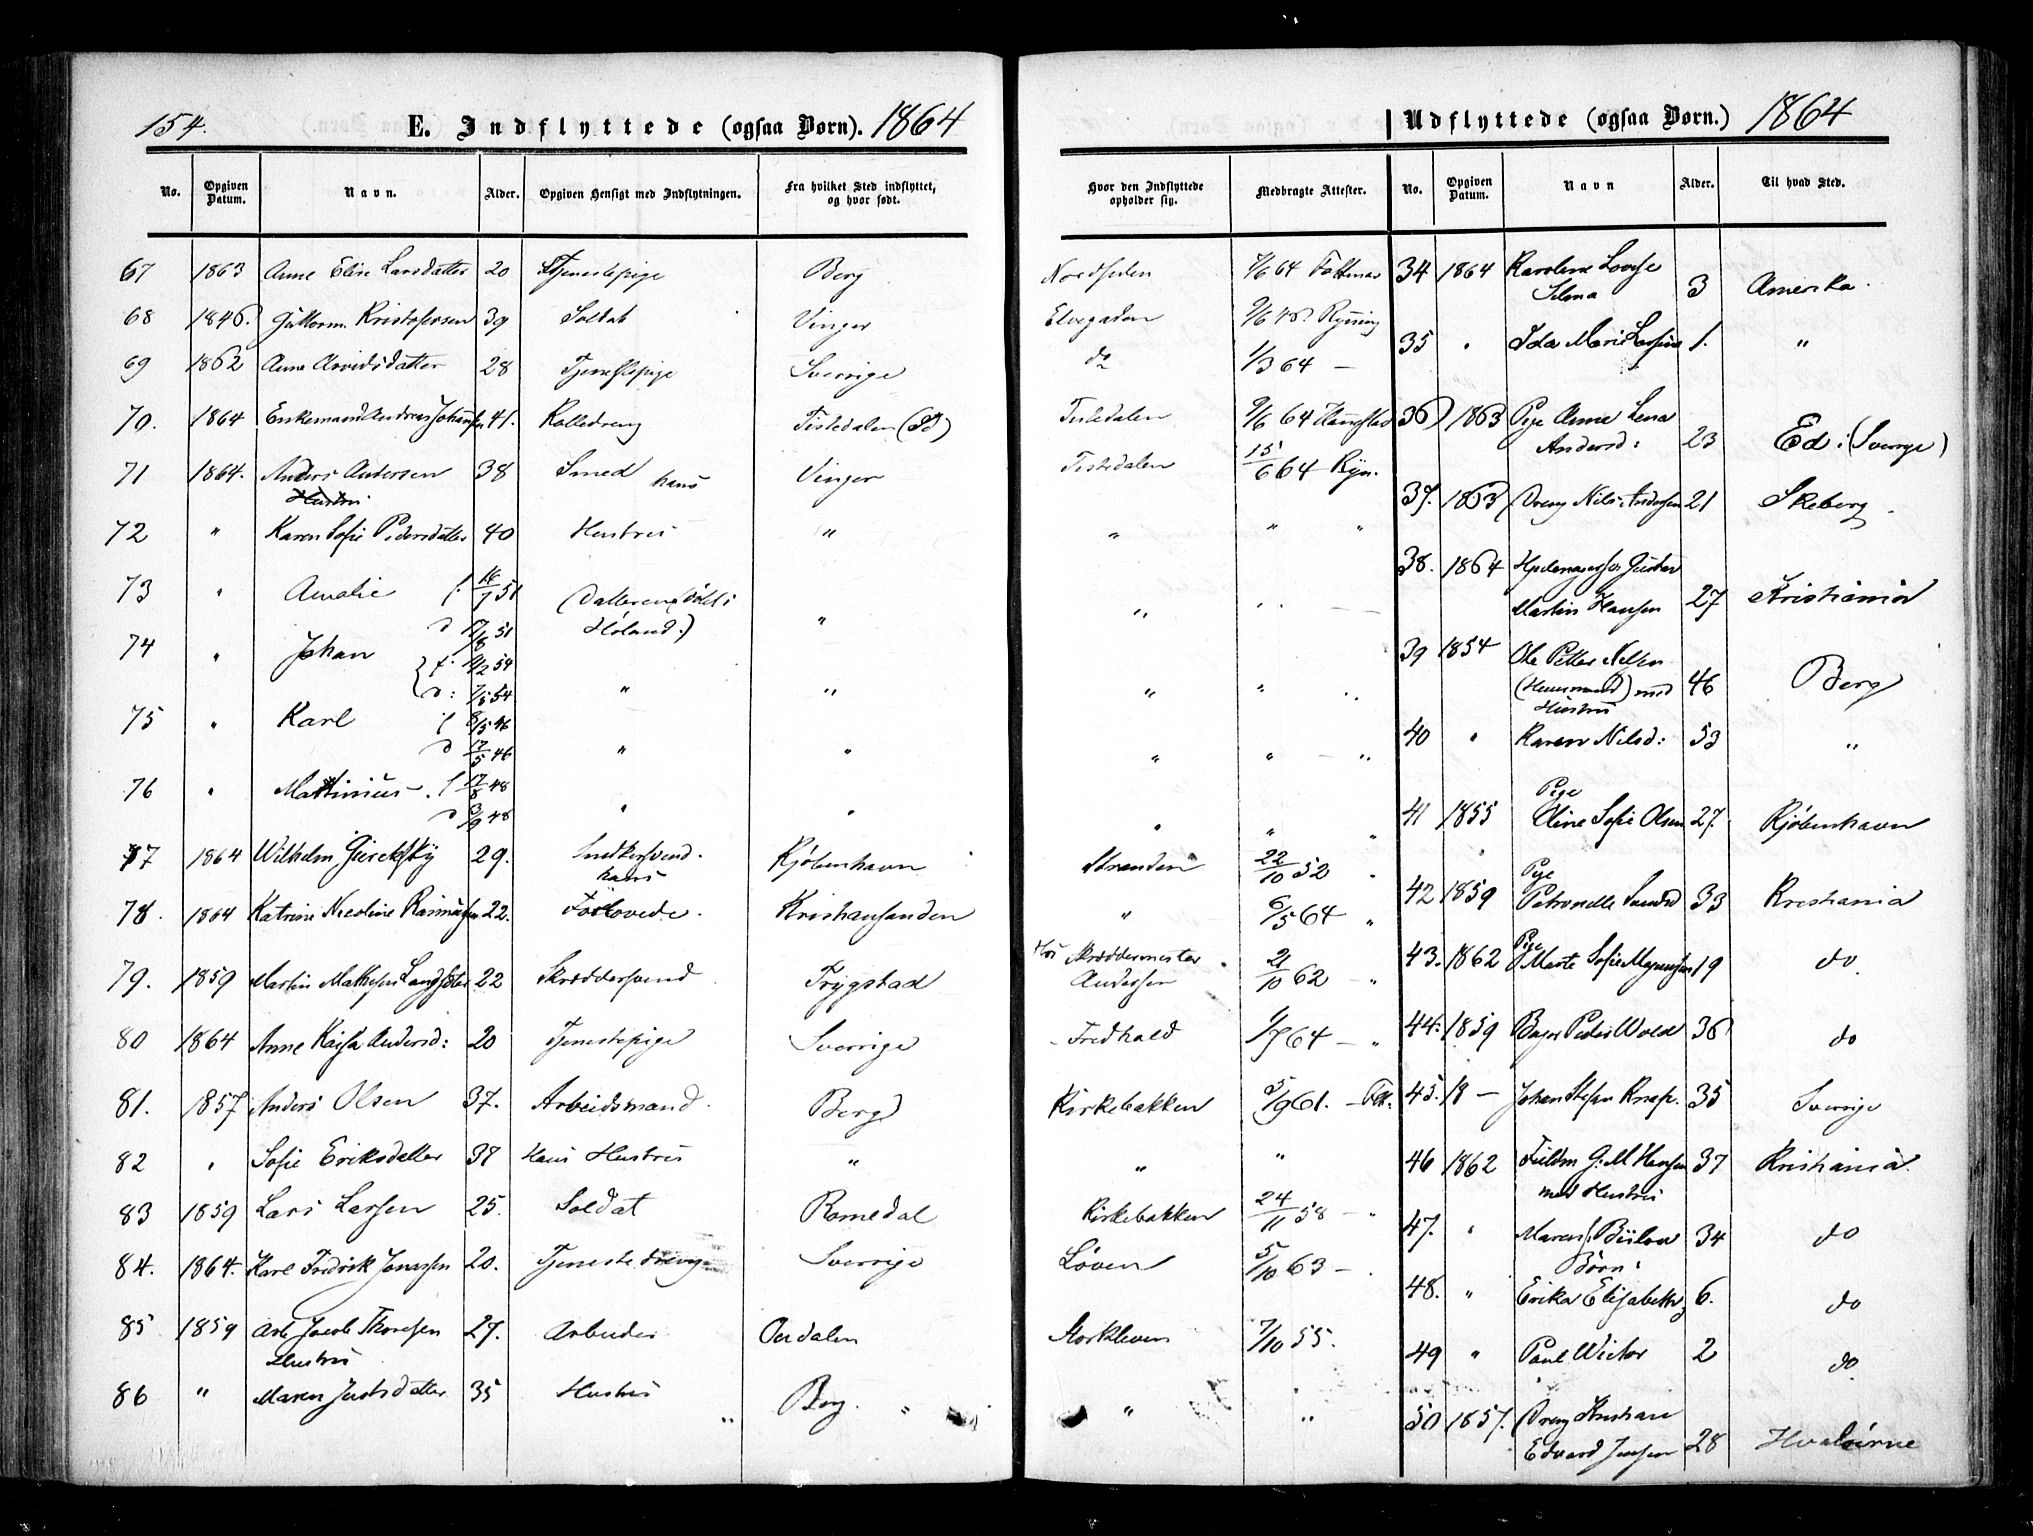 154.
E. Indflyttede (ogsaa Børn). 1864
No. Opgiven Datum. Navn. Alder. Opgiven Hensigt med Indflytningen. Fra hvilket Sted indflyttet, og hvor født.
67 1863 Anne Elise Larsdatter 20 Tjenestepige Berg
68 1846. Guttorm Kristofersen 39 Soldat Vinger
69 1862 Anne Arvidsdatter 28 Tjenestepige Sverrige
70. 1864 Enkemand Andreas Johansen 41. Tistedalen
71 1864. Anders Andersen 38 Smed Vinger
hans
72 " Karen Sofie Pedersdatter 40 Hustru "
73 " Amalie f. 51 (Datteren
Høland.) "
74 " Johan 51
f. 54
d: 54 "
75 " Karl f 8/5 46
d 17/5 46 " "
76 " f 17/8 48
d 3/9 48 " "
77 1864 Wilhelm 29. Kjøbenhavn
hans
78. 1864 Katrine Nicoline Rasmussen 22. Forlovede. Kristiansanden
79. 1859 Martin Mathisen 22 Skræddersvend Trygstad
80 1864 Anne Kaisa Andersd: 20 Tjenestepige Sverrige
81. 1857 Anders Olsen 37. Arbeidsmand. Berg
82 " Sofie Eriksdatter 38 Hans Hustru "
83 1859 Lars Larsen 25. Soldat Romedal
84. 1864. Karl Fredrik Jonassen 20. Tjenestedreng Sverrige
85 1859 Jacob Thoresen 27. Arbeider
Hustru
86 " Maren Justsdatter 35 Hustru " Berg. "
Hvor den Indflyttede opholder sig. Medbragte Attester.
64
Elvegaden
do 1/3 64 —
Tistedalen 9/6 64
Tistedalen 15/6 64 Ryn.
" " "
Stranden 22/10 52 "
" 6/5 64 "
Hos Skræddermester
Andersen 2/10 62 — "
Fredhald 64 — "
Kirkebakken 5/9 61.
" "
Kirkebakken 24/11 58 — "
Løven 5/10 63 —
7/10 55.
" "
Udflyttede (ogsaa Børn.) 1864
No. Opgiven Datum. Navn Alder. Til hvad Sted.
34 1864 Karoline Lovise
Selma 3 Amerika.
35 " Ida Marie 1. "
36 1863 Pige Anne Lena
Andersd: 23 Ed i (Sverrige)
37. 1863 Dreng Nils Andersen 21 Skeberg
38. 1864 Gustav
Martin Hansen 27 Kristiania
39 1854 Ole Petter Nilsen
(Huusmand) med 46 Berg
Hustru
40 " Karen Nilsd: 53 "
Pige
41 1855 Oline Sofie Olsen 27. Kjøbenhavn
Pige
42 1859 Petronelle 33 Kristiania
Pige
43. 1862 Marte Sofie 19 do.
44. 1859 Bager Peder Wold 36 do
45. 18 — Johan Stefan Knap. 35 Sverrige
46 1862 G. M Hansen 37 Kristiania.
med Hustru
47. " Maren f. Bülow 34 do
Børn:
48. " Erika Elisabeth 6. do
49 " Paul Victor 2 do.
50 1857. Dreng Kristian
Edvard Jensen 28 Hvaløerne